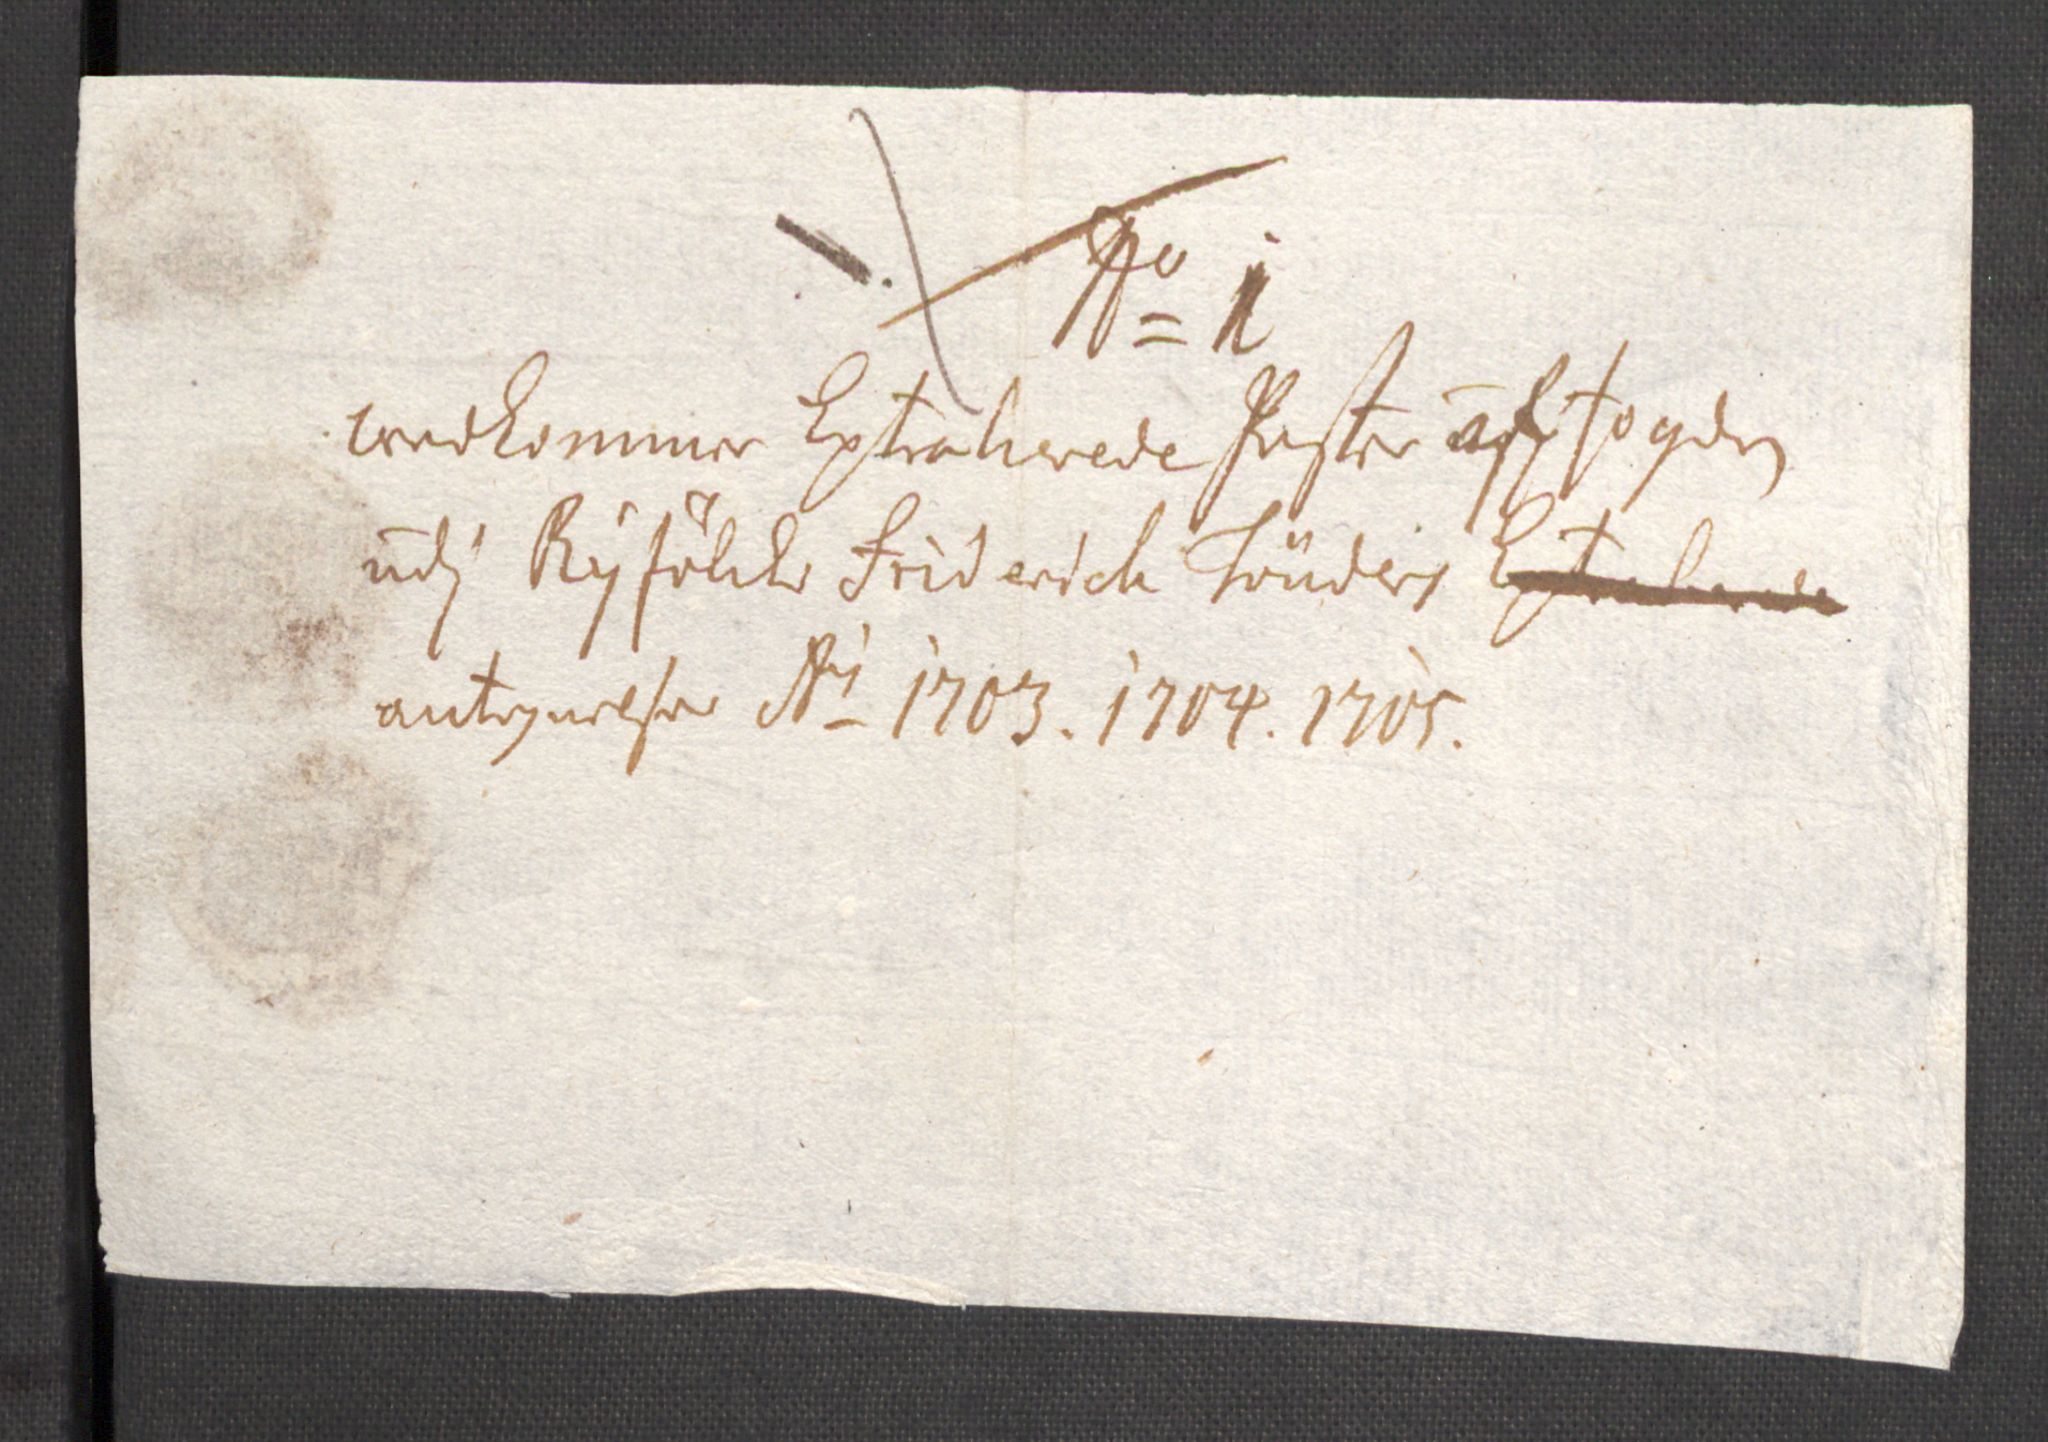 1.
No i
vedkommer Extraherede Poster aff fogden
udj Ryfölcke Friderich Tönders Extraherede
antegnelser Ao 1703. 1704. 1705.